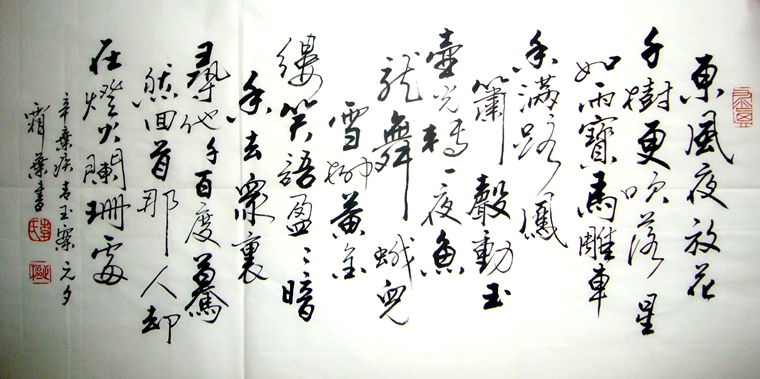 東風夜放花
千樹更吹落星
如雨寶馬雕車
香滿路鳳
簫聲動玉
壺光轉一夜魚
龍舞蛾兒
雪柳黃金
縷笑語盈〻暗
香去眾裏
尋他千百度驀
然回首那人却
在燈火闌珊處
辛棄疾青玉案元夕
霜葉書